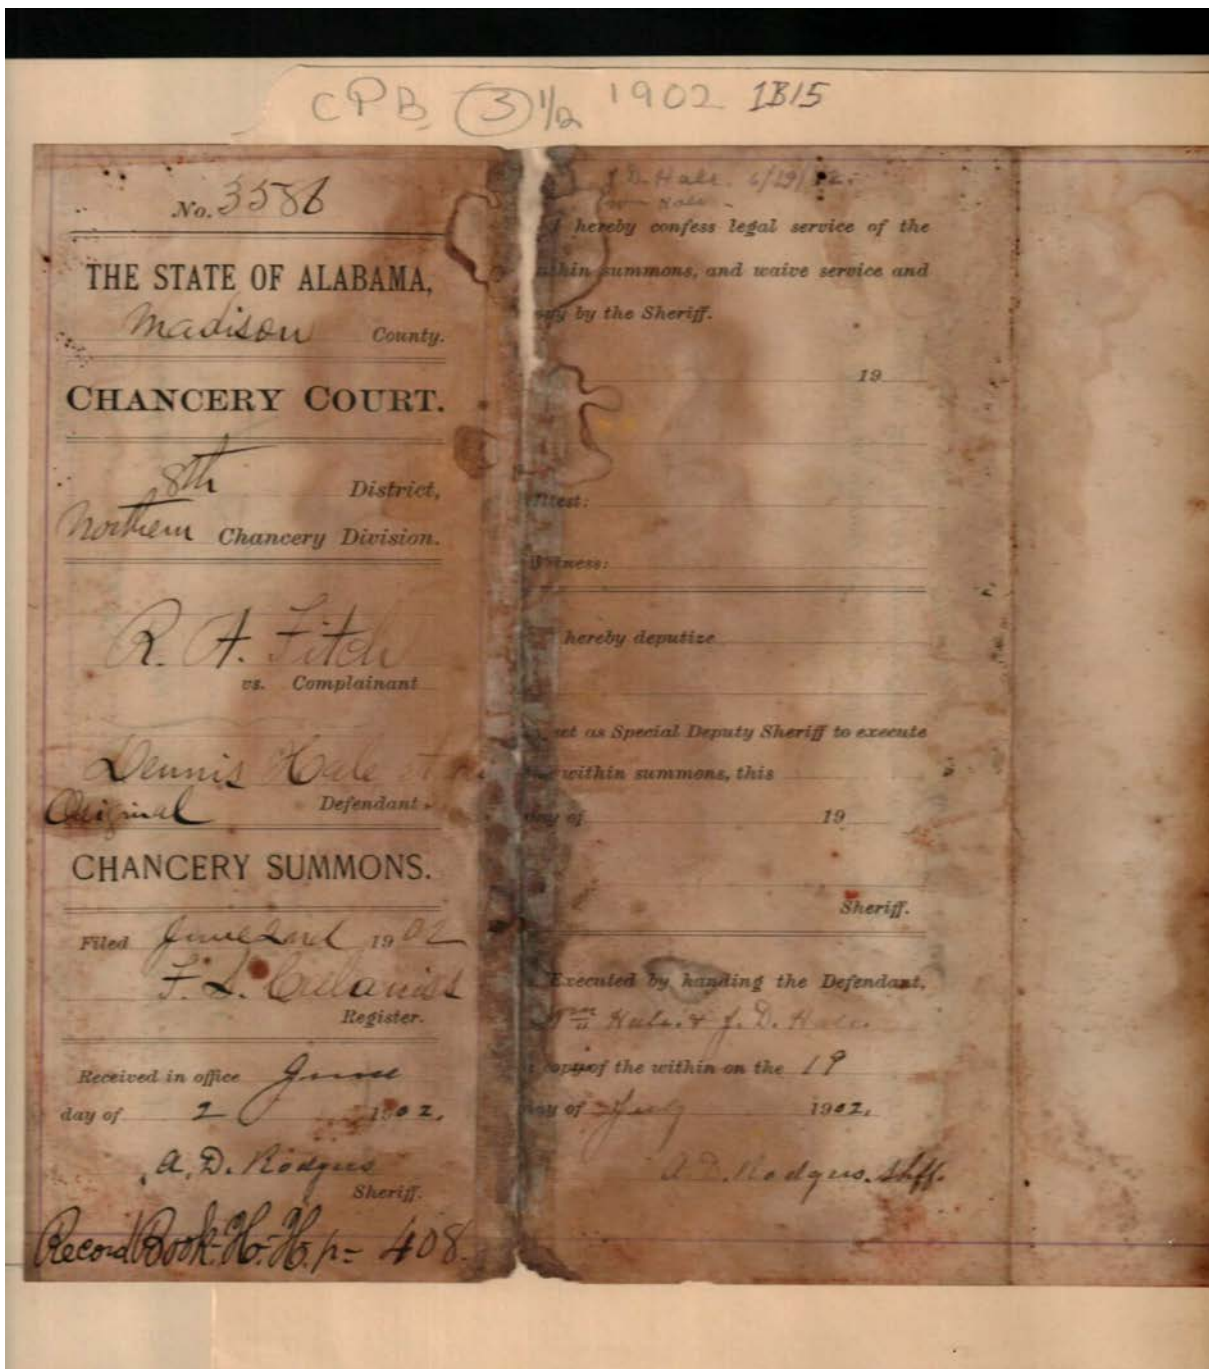 CPB (3) 1/2 1902 1B15
No. 3586
THE STATE OF ALABAMA,
Madison County.
CHANCERY COURT.
8th District,
Northern Chancery Division.
R. A. Fitch
vs. Complainant
Dennis Hale et
Original Defendant
CHANCERY SUMMONS.
Filed June 2nd 1902
F. L.
Register.
Received in office June
day of 2 1902.
A. D. Rodgers
Sheriff.
Record Book H. H. p = 408.
J. D. Hale. 6/19/02.
Hale
I hereby confess legal service of the
within summons, and waive service and
by the Sheriff.
19
Attest:
Witness:
hereby deputize
act as Special Deputy Sheriff to execute
within summons, this
day of 19
Sheriff.
Executed by handing the Defendant,
Wm Hale & J. D. Hale.
copy of the within on the 19
day of July 1902.
A. D. Rodgers. Shff.